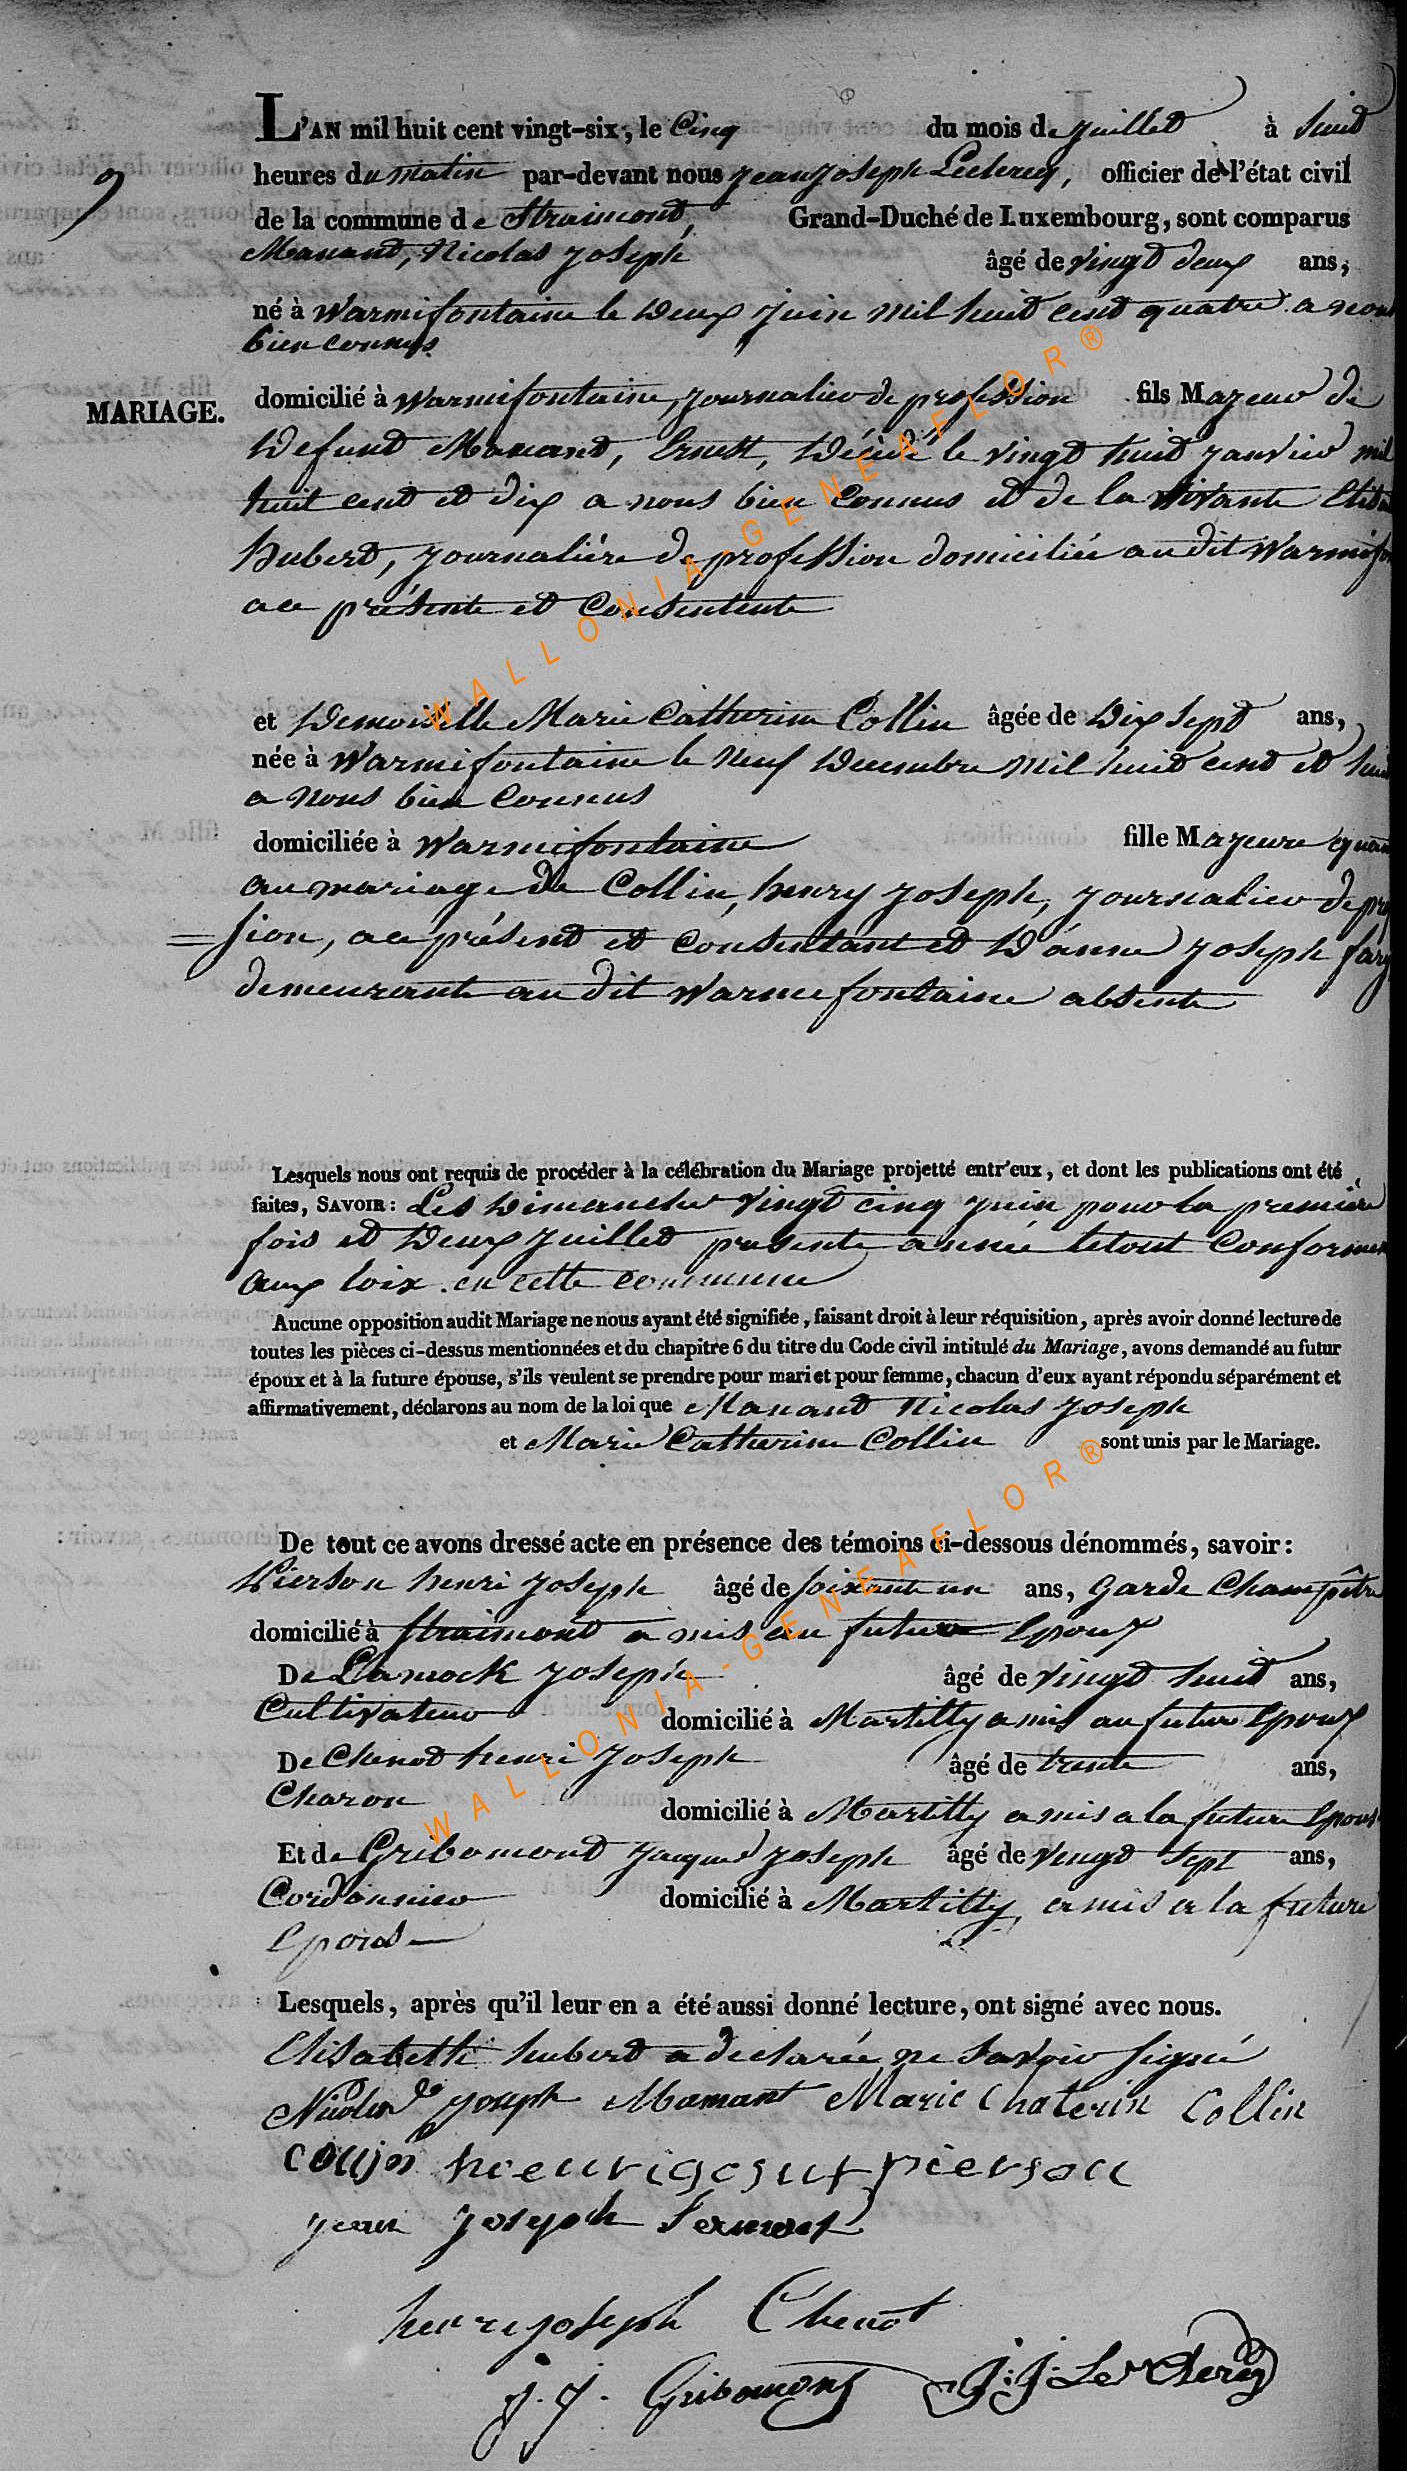 L'AN mil huit cent vingt-six, le Cinq du mois de juillet à huit
heures du matin par-devant nous jean joseph Leclercq, officier de l'état civil
9
de la commune de Straimont, Grand-Duché de Luxembourg, sont comparus
Manand, Nicolas joseph âgé de vingt deux ans,
né à Warmifontaine le deux juin mil huit cent quatre a nous
bien connus
MARIAGE.
domicilié à Warmifontaine, journalier de profession fils Majeur de
defunt Manand, Ernest, décédé le vingt huit janvier mil
huit cent et dix a nous bien connus et de la vivante
hubert, journalière de profession domiciliée au dit Warmifon
a ce présente et consentente
et demoiselle Marie Catherine Collin âgée de dix sept ans,
née à Warmifontaine le neuf decembre mil huit cent et huit
a nous bien connus
domiciliée à Warmifontaine fille Majeure quan
au mariage de Collin, henry joseph, journalier de pro
= sion, a ce présent et consentant et d'anne joseph
demeurante au dit Warmifontaine absente
Lesquels nous ont requis de procéder à la célébration du Mariage projetté entr'eux, et dont les publications ont été
faites, SAVOIR: Les dimanche vingt cinq juin pour la première
fois et deux juillet presente année le tout conformement
aux loix en cette commune
Aucune opposition audit Mariage ne nous ayant été signifiée, faisant droit à leur réquisition, après avoir donné lecture de
toutes les pièces ci-dessus mentionnées et du chapitre 6 du titre du Code civil intitulé du Mariage, avons demandé au futur
époux et à la future épouse, s'ils veulent se prendre pour mari et pour femme, chacun d'eux ayant répondu séparément et
affirmativement, déclarons au nom de la loi que Manand Nicolas joseph
et Marie Catherine Collin sont unis par le Mariage.
De tout ce avons dressé acte en présence des témoins ci-dessous dénommés, savoir:
Pierson henri joseph âgé de soixante un ans, garde Champêtre
domicilié à Straimont amis au futur Epoux
De Lamock joseph âgé de vingt huit ans,
Cultivateur domicilié à Martilly amis au futur Epoux
De Chenot henri joseph âgé de trente ans,
Charon domicilié à Martilly amis a la future Epous
Et de Gribomont jacques joseph âgé de vingt sept ans,
Cordonnier domicilié à Martilly, amis a la future
Epouse
Lesquels, après qu'il leur en a été aussi donné lecture, ont signé avec nous.
Elisabeth hubert a declarée ne savoir signé
Nicolas joseph Mamant Marie Chaterin Collin
pierson
jean joseph
henri joseph Chenot
J. J. Gribomont J: J: Le Clercq
WALLONIA-GENEAFLOR®
WALLONIA-GENEAFLOR®